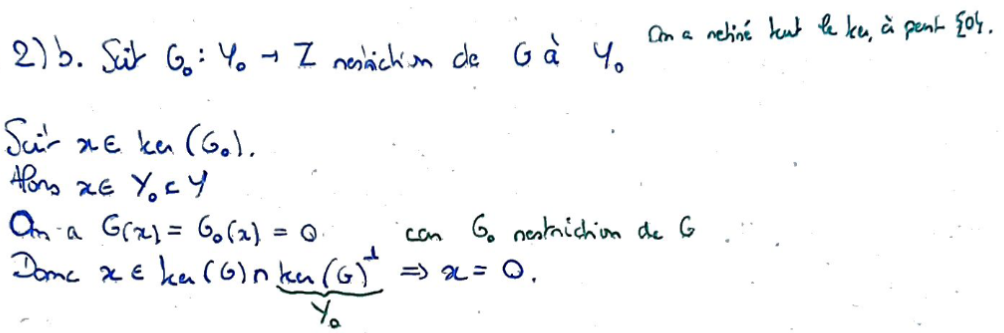 2) b. Soit G₀ : Y₀ → Z restriction de G à Y₀ On a retiré tout le ker, à part {0}.
Soit x ∈ ker (G₀).
Alors x ∈ Y₀ ⊂ Y
On a G(x) = G₀(x) = 0. car G₀ restriction de G
Donc x ∈ ker (G) ∩ ker (G)^⊥ ⇒ x = 0.
Y₀